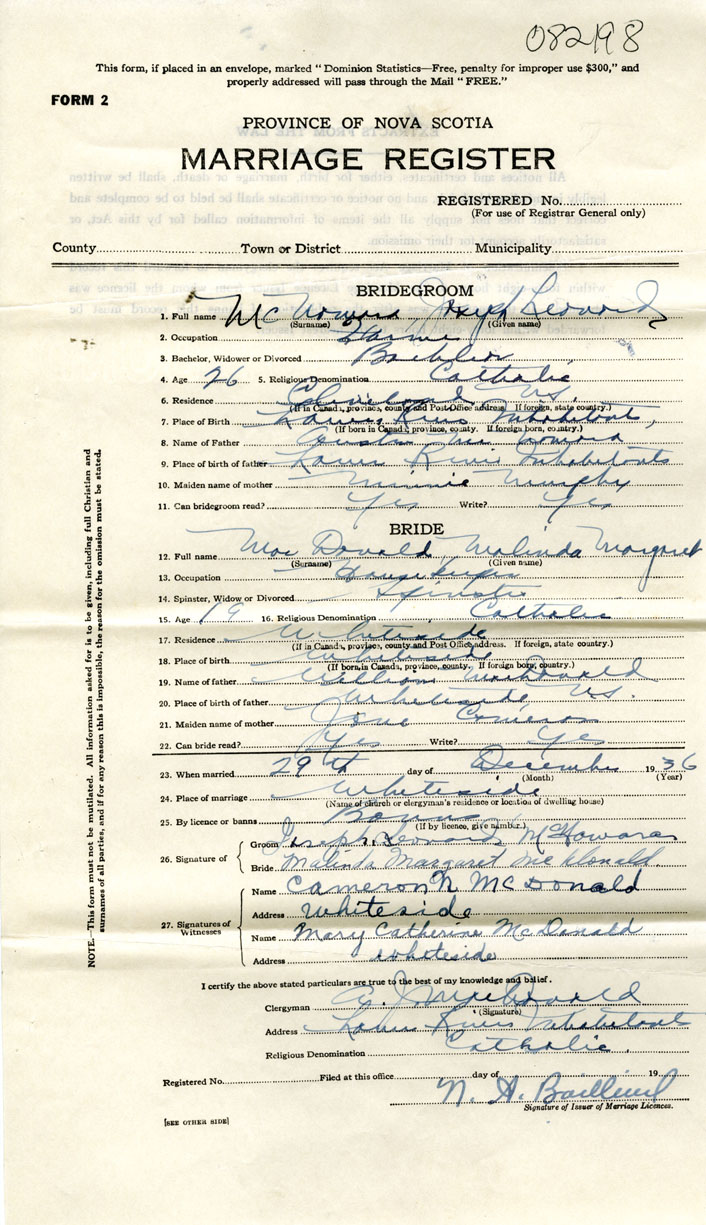 082198
This form, if placed in an envelope, marked "Dominion Statistics—Free, penalty for improper use $300," and
properly addressed will pass through the Mail "FREE."
FORM 2
PROVINCE OF NOVA SCOTIA
MARRIAGE REGISTER
REGISTERED No.
(For use of Registrar General only)
County Town or District Municipality
BRIDEGROOM
1. Full name Mc Joseph Leonard
(Surname) (Given name)
2. Occupation
3. Bachelor, Widower or Divorced Bachelor
4. Age 26 5. Religious Denomination Catholic
6. Residence Cleveland
(If in Canada, province, county and Post Office address. If foreign, state country.)
7. Place of Birth River Inhabitants,
(If born in Canada, province, county. If foreign born, country.)
8. Name of Father
9. Place of birth of father River Inhabitants
10. Maiden name of mother Minnie Murphy
11. Can bridegroom read? Yes Write? Yes
BRIDE
12. Full name Mac Donald, Malinda Margaret
(Surname) (Given name)
13. Occupation Housekeeper
14. Spinster, Widow or Divorced Spinster
15. Age 19 16. Religious Denomination Catholic
17. Residence Whiteside
(If in Canada, province, county and Post Office address. If foreign, state country.)
18. Place of birth Whiteside
(If born in Canada, province, county. If foreign born, country.)
19. Name of father William MacDonald
20. Place of birth of father Whiteside,
21. Maiden name of mother Jane Cameron
22. Can bride read? Yes Write? Yes
23. When married 29th day of December 1936
(Month) (Year)
24. Place of marriage Whiteside
(Name of church or clergyman's residence or location of dwelling house)
25. By licence or banns Banns
(If by licence, give number.)
26. Signature of
Groom Joseph Leonard
Bride Malinda Margaret McDonald
27. Signatures of Witnesses
Name Cameron McDonald
Address Whiteside
Name Mary Catherine McDonald
Address Whiteside
I certify the above stated particulars are true to the best of my knowledge and belief.
Clergyman
(Signature)
Address River Inhabitants
Religious Denomination Catholic.
Registered No. Filed at this office day of 19
Signature of Issuer of Marriage Licences.
[SEE OTHER SIDE]
NOTE.—This form must not be mutilated. All information asked for is to be given, including full Christian and
surnames of all parties, and if for any reason this is impossible, the reason for the omission must be stated.